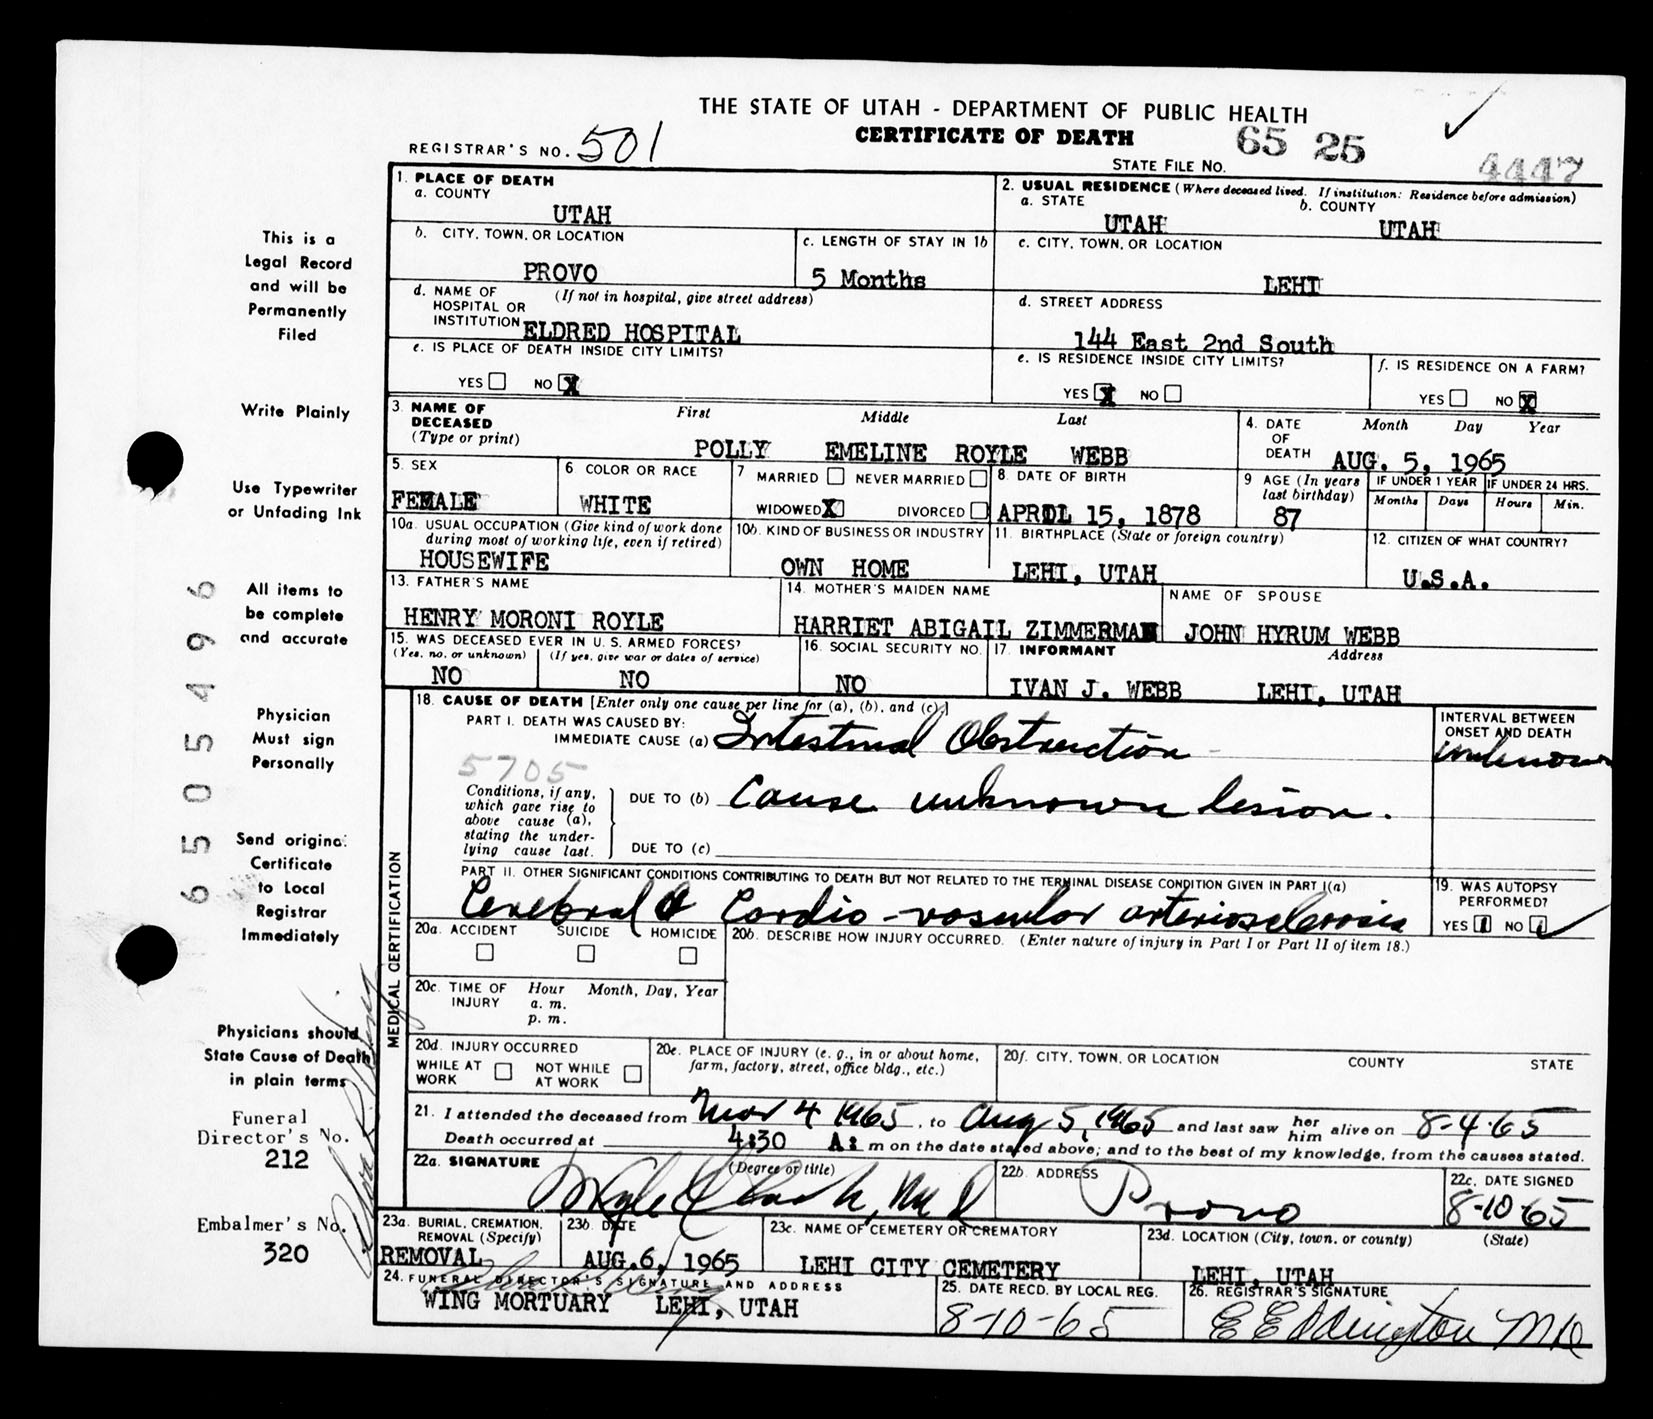 THE STATE OF UTAH - DEPARTMENT OF PUBLIC HEALTH
CERTIFICATE OF DEATH
REGISTRAR'S NO. 501
STATE FILE NO. 65 25 4447
1. PLACE OF DEATH
a. COUNTY
UTAH
2. USUAL RESIDENCE (Where deceased lived. If institution: Residence before admission)
a. STATE b. COUNTY
UTAH UTAH
b. CITY, TOWN, OR LOCATION
PROVO
c. LENGTH OF STAY IN 1b
5 Months
c. CITY, TOWN, OR LOCATION
LEHI
d. NAME OF HOSPITAL OR INSTITUTION (If not in hospital, give street address)
ELDRED HOSPITAL
d. STREET ADDRESS
144 East 2nd South
e. IS PLACE OF DEATH INSIDE CITY LIMITS?
YES NO X
e. IS RESIDENCE INSIDE CITY LIMITS?
YES X NO
f. IS RESIDENCE ON A FARM?
YES NO X
3. NAME OF DECEASED (Type or print) First Middle Last
POLLY EMELINE ROYLE WEBB
4. DATE OF DEATH Month Day Year
AUG. 5, 1965
5. SEX
FEMALE
6. COLOR OR RACE
WHITE
7 MARRIED NEVER MARRIED
WIDOWED X DIVORCED
8. DATE OF BIRTH
APRIL 15, 1878
9 AGE (In years last birthday)
87
IF UNDER 1 YEAR IF UNDER 24 HRS.
Months Days Hours Min.
10a. USUAL OCCUPATION (Give kind of work done during most of working life, even if retired)
HOUSEWIFE
10b. KIND OF BUSINESS OR INDUSTRY
OWN HOME
11. BIRTHPLACE (State or foreign country)
LEHI, UTAH
12. CITIZEN OF WHAT COUNTRY?
U.S.A.
13. FATHER'S NAME
HENRY MORONI ROYLE
14. MOTHER'S MAIDEN NAME
HARRIET ABIGAIL ZIMMERMAN
NAME OF SPOUSE
JOHN HYRUM WEBB
15. WAS DECEASED EVER IN U. S. ARMED FORCES?
(Yes, no, or unknown) (If yes, give war or dates of service)
NO NO
16. SOCIAL SECURITY NO.
NO
17. INFORMANT Address
IVAN J. WEBB LEHI, UTAH
MEDICAL CERTIFICATION
18. CAUSE OF DEATH [Enter only one cause per line for (a), (b), and (c).]
PART I. DEATH WAS CAUSED BY:
IMMEDIATE CAUSE (a) Intestinal Obstruction
INTERVAL BETWEEN ONSET AND DEATH
unknown
5705
Conditions, if any, which gave rise to above cause (a), stating the underlying cause last.
DUE TO (b) Cause unknown lesion.
DUE TO (c)
PART II. OTHER SIGNIFICANT CONDITIONS CONTRIBUTING TO DEATH BUT NOT RELATED TO THE TERMINAL DISEASE CONDITION GIVEN IN PART I(a)
Cerebral & Cardio-vascular arteriosclerosis
19. WAS AUTOPSY PERFORMED?
YES NO
20a. ACCIDENT SUICIDE HOMICIDE
20b. DESCRIBE HOW INJURY OCCURRED. (Enter nature of injury in Part I or Part II of item 18.)
20c. TIME OF INJURY Hour Month, Day, Year
a. m.
p. m.
20d. INJURY OCCURRED
WHILE AT WORK NOT WHILE AT WORK
20e. PLACE OF INJURY (e. g., in or about home, farm, factory, street, office bldg., etc.)
20f. CITY, TOWN, OR LOCATION COUNTY STATE
21. I attended the deceased from Mar 4 1965, to Aug 5, 1965 and last saw her him alive on 8-4-65
Death occurred at 4:30 A: m on the date stated above; and to the best of my knowledge, from the causes stated.
22a. SIGNATURE (Degree or title)
Clark, M D
22b. ADDRESS
Provo
22c. DATE SIGNED
8-10-65
23a. BURIAL, CREMATION, REMOVAL (Specify)
REMOVAL
23b DATE
AUG. 6, 1965
23c. NAME OF CEMETERY OR CREMATORY
LEHI CITY CEMETERY
23d. LOCATION (City, town, or county) (State)
LEHI, UTAH
24. FUNERAL DIRECTOR'S SIGNATURE AND ADDRESS
WING MORTUARY LEHI, UTAH
25. DATE RECD. BY LOCAL REG.
8-10-65
26. REGISTRAR'S SIGNATURE
E E Eddington MD
This is a
Legal Record
and will be
Permanently
Filed
Write Plainly
Use Typewriter
or Unfading Ink
All items to
be complete
and accurate
Physician
Must sign
Personally
Send original
Certificate
to Local
Registrar
Immediately
Physicians should
State Cause of Death
in plain terms
Funeral
Director's No.
212
Embalmer's No.
320
6505496